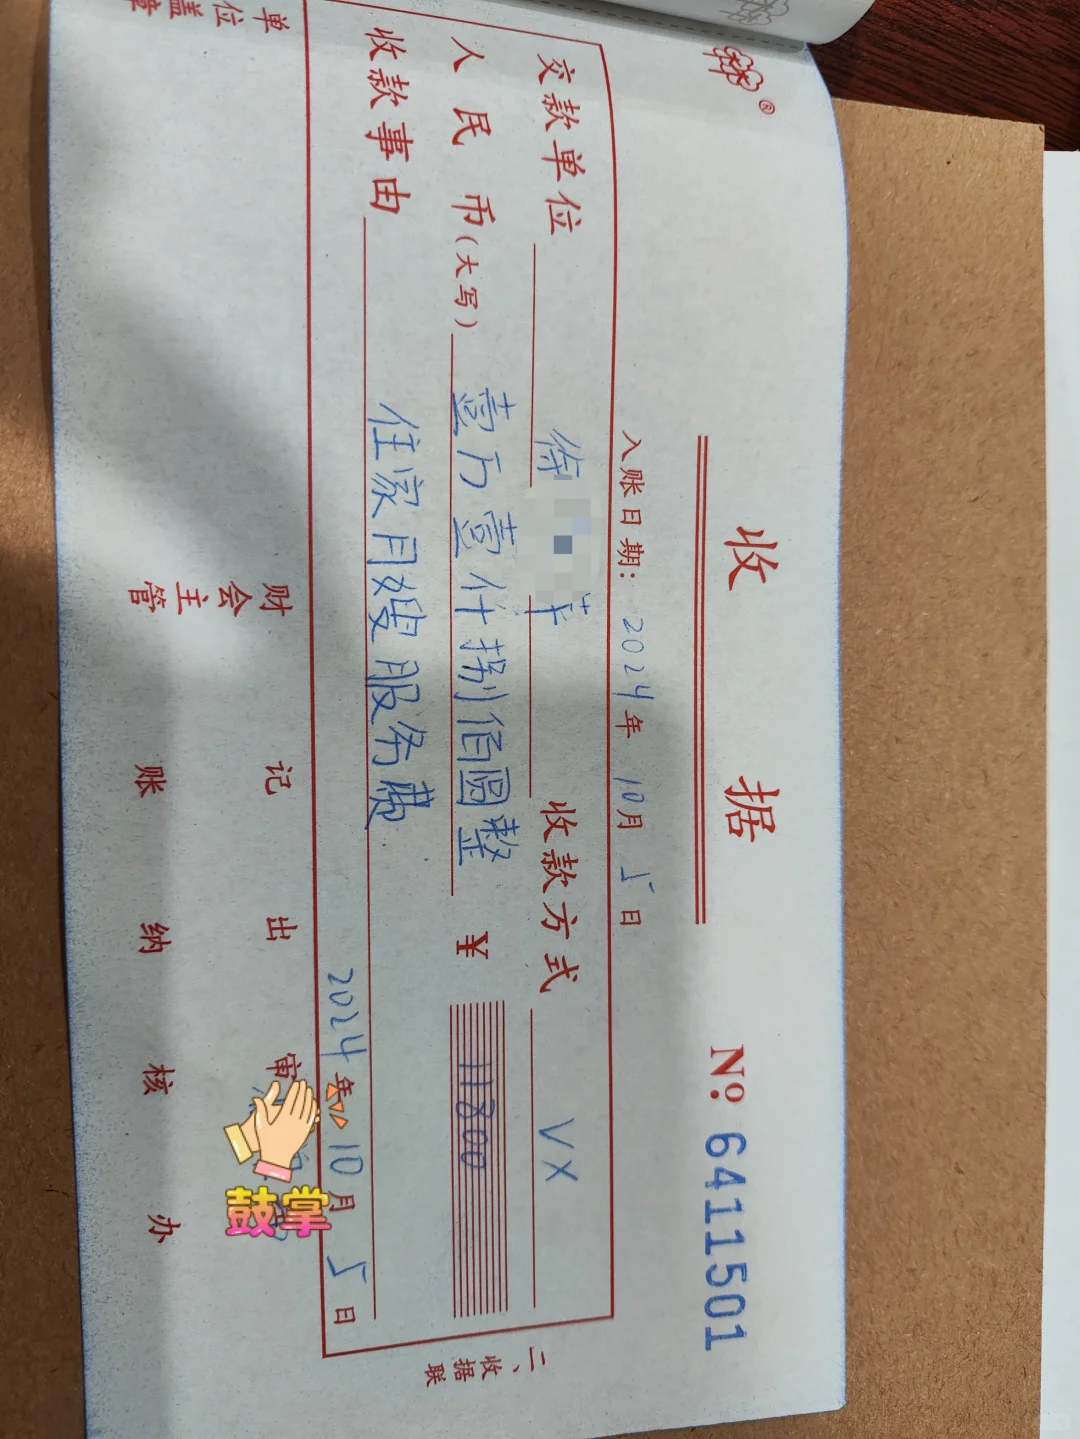 收 据
№ 6411501
入账日期: 2024年 10月 5日
交款单位 徐 羊 收款方式 VX
人民币(大写) 壹万壹仟捌佰圆整 ¥ 11800
收款事由 住家月嫂服务费
2024年 10月 5日
二、收据联
单位盖章 财会主管 记账 出纳 审核 办
鼓掌
®